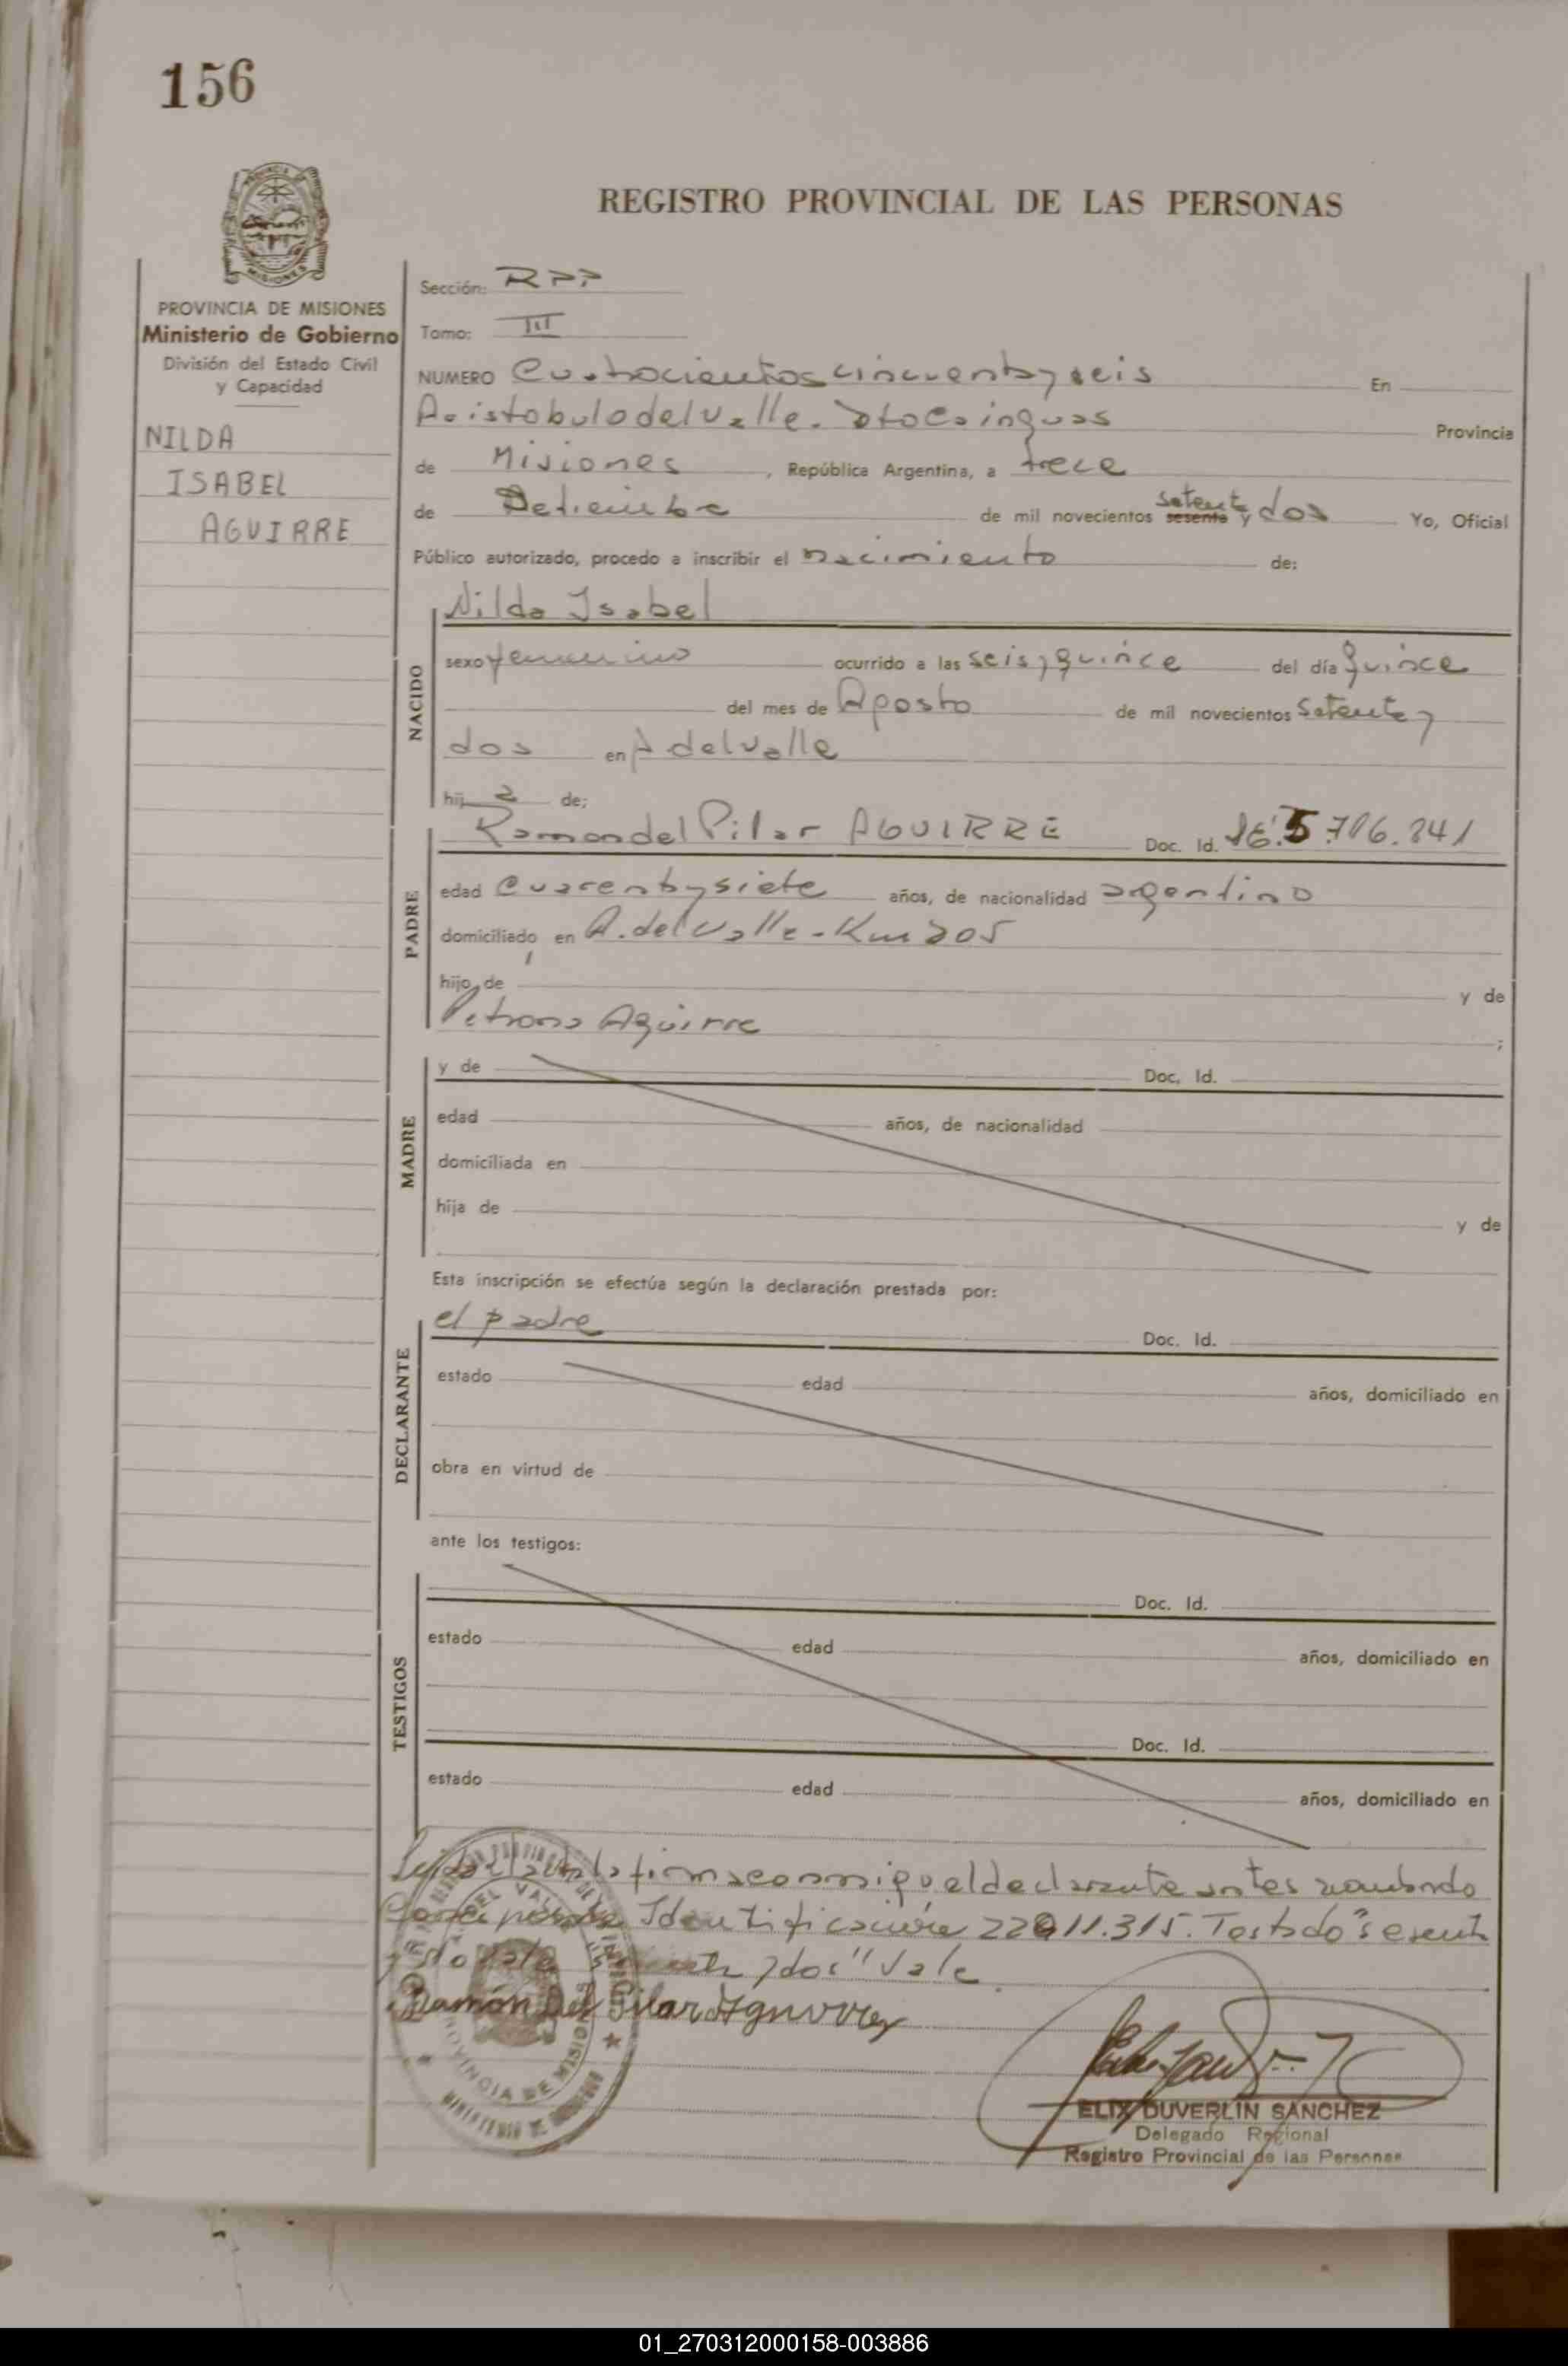 156
REGISTRO PROVINCIAL DE LAS PERSONAS
PROVINCIA DE MISIONES
Ministerio de Gobierno
División del Estado Civil
y Capacidad
NILDA
ISABEL
AGUIRRE
Sección: RPP
Tomo: III
NUMERO Cuatrocientos cincuenta y seis En
Aristobulo del Valle. Dto Cainguas Provincia
de Misiones, República Argentina, a trece
de de mil novecientos setenta sesenta y dos Yo, Oficial
Público autorizado, procedo a inscribir el nacimiento de:
NACIDO
Nilda Isabel
sexo femenino ocurrido a las seis y quince del día quince
del mes de Agosto de mil novecientos setenta y
dos en A del Valle
hij a de;
PADRE
Ramon del Pilar AGUIRRE Doc. Id.
edad cuarenta y siete años, de nacionalidad argentino
domiciliado en A. del Valle - Km 205
hijo de y de
Petrona Aguirre ;
MADRE
y de Doc. Id.
edad años, de nacionalidad
domiciliada en
hija de y de
Esta inscripción se efectúa según la declaración prestada por:
DECLARANTE
el padre Doc. Id.
estado edad años, domiciliado en
obra en virtud de
ante los testigos:
TESTIGOS
Doc. Id.
estado edad años, domiciliado en
Doc. Id.
estado edad años, domiciliado en
Leida el acta la firma conmigo el declarante antes nombrado
Identificación 22911.315. Testado "sesenta
y dos" Vale
Ramón Del Pilar Aguirre
ELIX DUVERLIN SANCHEZ
Delegado Regional
Registro Provincial de las Personas
01_270312000158-003886